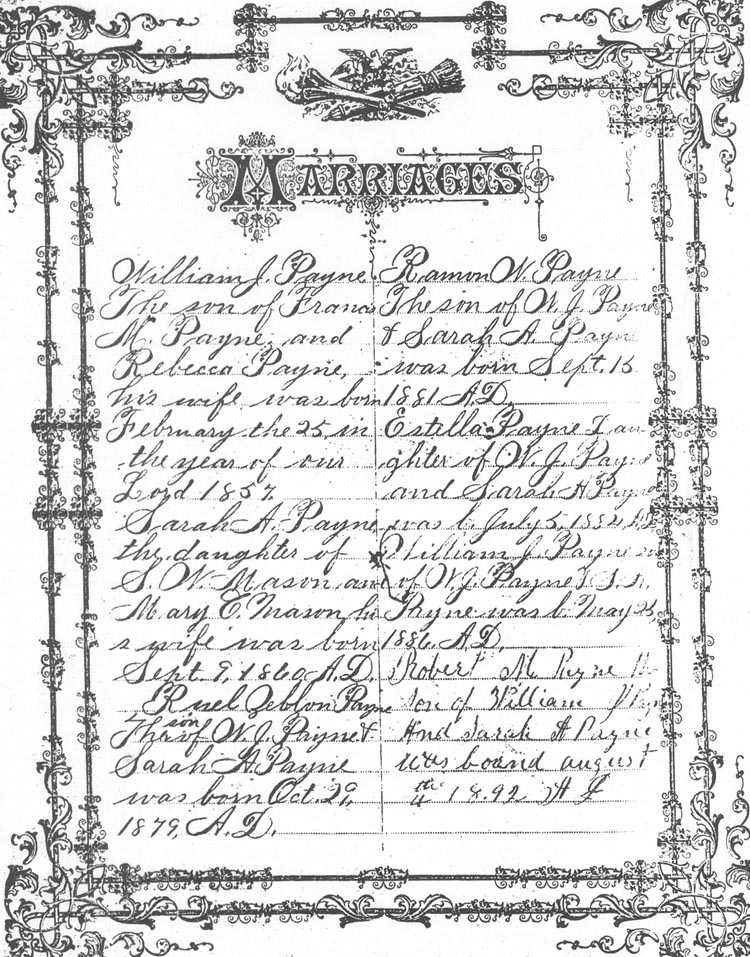 MARRIAGES
William J. Payne
The son of Francis
M. Payne, and
Rebecca Payne,
his wife was born
February the 25, in
the year of our
Lord 1857.
Sarah A. Payne
the daughter of
S. W. Mason and
Mary E. Mason hi
s wife was born
Sept. 9, 1860, A.D.
Ruel Zeblon Payne
The son of W. J. Payne &
Sarah A. Payne
was born Oct. 29,
1879, A.D.
Ramon W. Payne
The son of W. J. Payne
& Sarah A. Payn
was born Sept. 15
1881 A.D.
Estella Payne Dau
ghter of W. J. Payne
and Sarah A Payne
was b July 5, 1882
William J. Payne
of W. J. Payne & S.
Payne was b May 25,
1886 A.D.
Robert M Payne
Son of William J Payn
And Sarah A Payne
was bound august
4th 1892 A